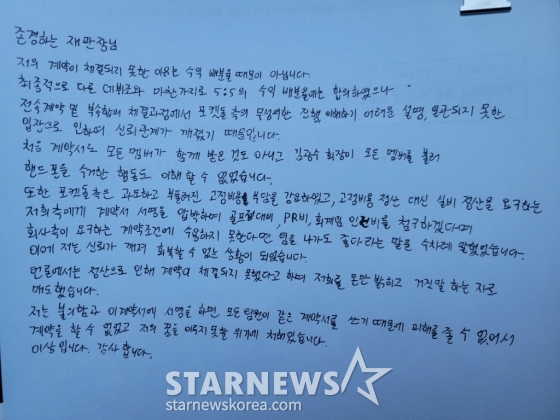 존경하는 재판장님
저의 계약이 체결되지 못한 이유는 수익 배분율 때문이 아닙니다.
최종적으로 다른 데뷔조와 마찬가지로 5:5의 수익 배분율에는 합의하였으나
전속계약 및 부속합의 체결과정에서 포켓돌 측의 무성의한 진행, 이해하기 어려운 설명, 일관되지 못한
입장으로 인하여 신뢰관계가 깨졌기 때문입니다.
처음 계약서도 모든 멤버가 함께 받은 것도 아니고 김광수 회장이 모든 멤버를 불러
핸드폰을 수거한 행동도 이해할 수 없었습니다.
또한 포켓돌측은 과도하고 부풀려진 고정비용 부담을 강요하였고, 고정비용 정산 대신 실비 정산을 요구하는
저희측에게 계약서 서명을 압박하며 골프접대비, PR비, 회계팀 인건비를 청구하겠다며
회사측이 요구하는 계약조건에 수용하지 못한다면 팀을 나가도 좋다라는 말을 수차례 말했었습니다.
이에 저는 신뢰가 깨져 회복할 수 없는 상황이 되었습니다.
언론에서는 정산으로 인해 계약이 체결되지 못했다고 하며 저희를 돈만 밝히고 거짓말 하는 자로
매도했습니다.
저는 불의함과 이 계약서에 서명을 하면 모든 팀원이 같은 계약서를 쓰기 때문에 피해를 줄 수 없어서
계약을 할 수 없었고 저의 꿈을 이루지 못할 위기에 처해있습니다.
이상입니다. 감사합니다.
STARNEWS
starnewskorea.com